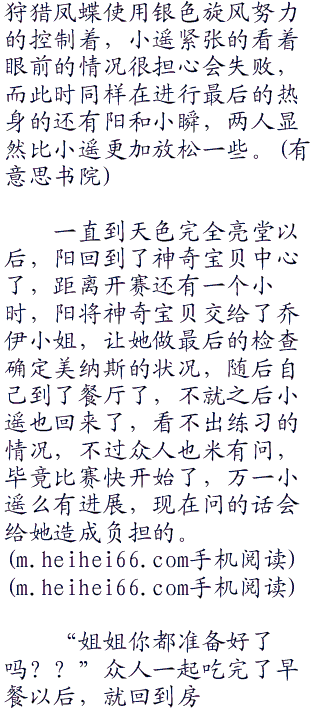 狩猎凤蝶使用银色旋风努力
的控制着，小遥紧张的看着
眼前的情况很担心会失败，
而此时同样在进行最后的热
身的还有阳和小瞬，两人显
然比小遥更加放松一些。(有
意思书院)
一直到天色完全亮堂以
后，阳回到了神奇宝贝中心
了，距离开赛还有一个小
时，阳将神奇宝贝交给了乔
伊小姐，让她做最后的检查
确定美纳斯的状况，随后自
己到了餐厅了，不就之后小
遥也回来了，看不出练习的
情况，不过众人也米有问，
毕竟比赛快开始了，万一小
遥么有进展，现在问的话会
给她造成负担的。
(m.heihei66.com手机阅读)
(m.heihei66.com手机阅读)
“姐姐你都准备好了
吗？？”众人一起吃完了早
餐以后，就回到房